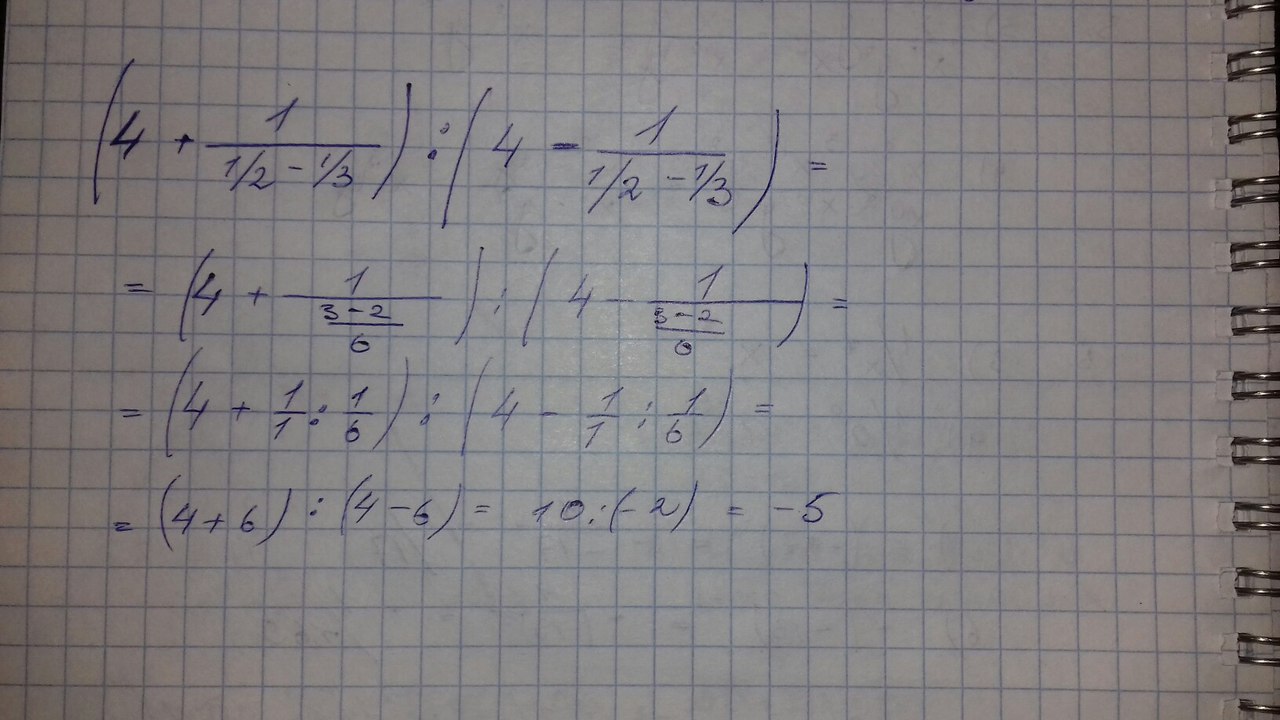 (4 + 1/(1/2 - 1/3)) : (4 - 1/(1/2 - 1/3)) =
= (4 + 1/((3-2)/6)) : (4 - 1/((3-2)/6)) =
= (4 + 1/1 : 1/6) : (4 - 1/1 : 1/6) =
= (4+6) : (4-6) = 10:(-2) = -5